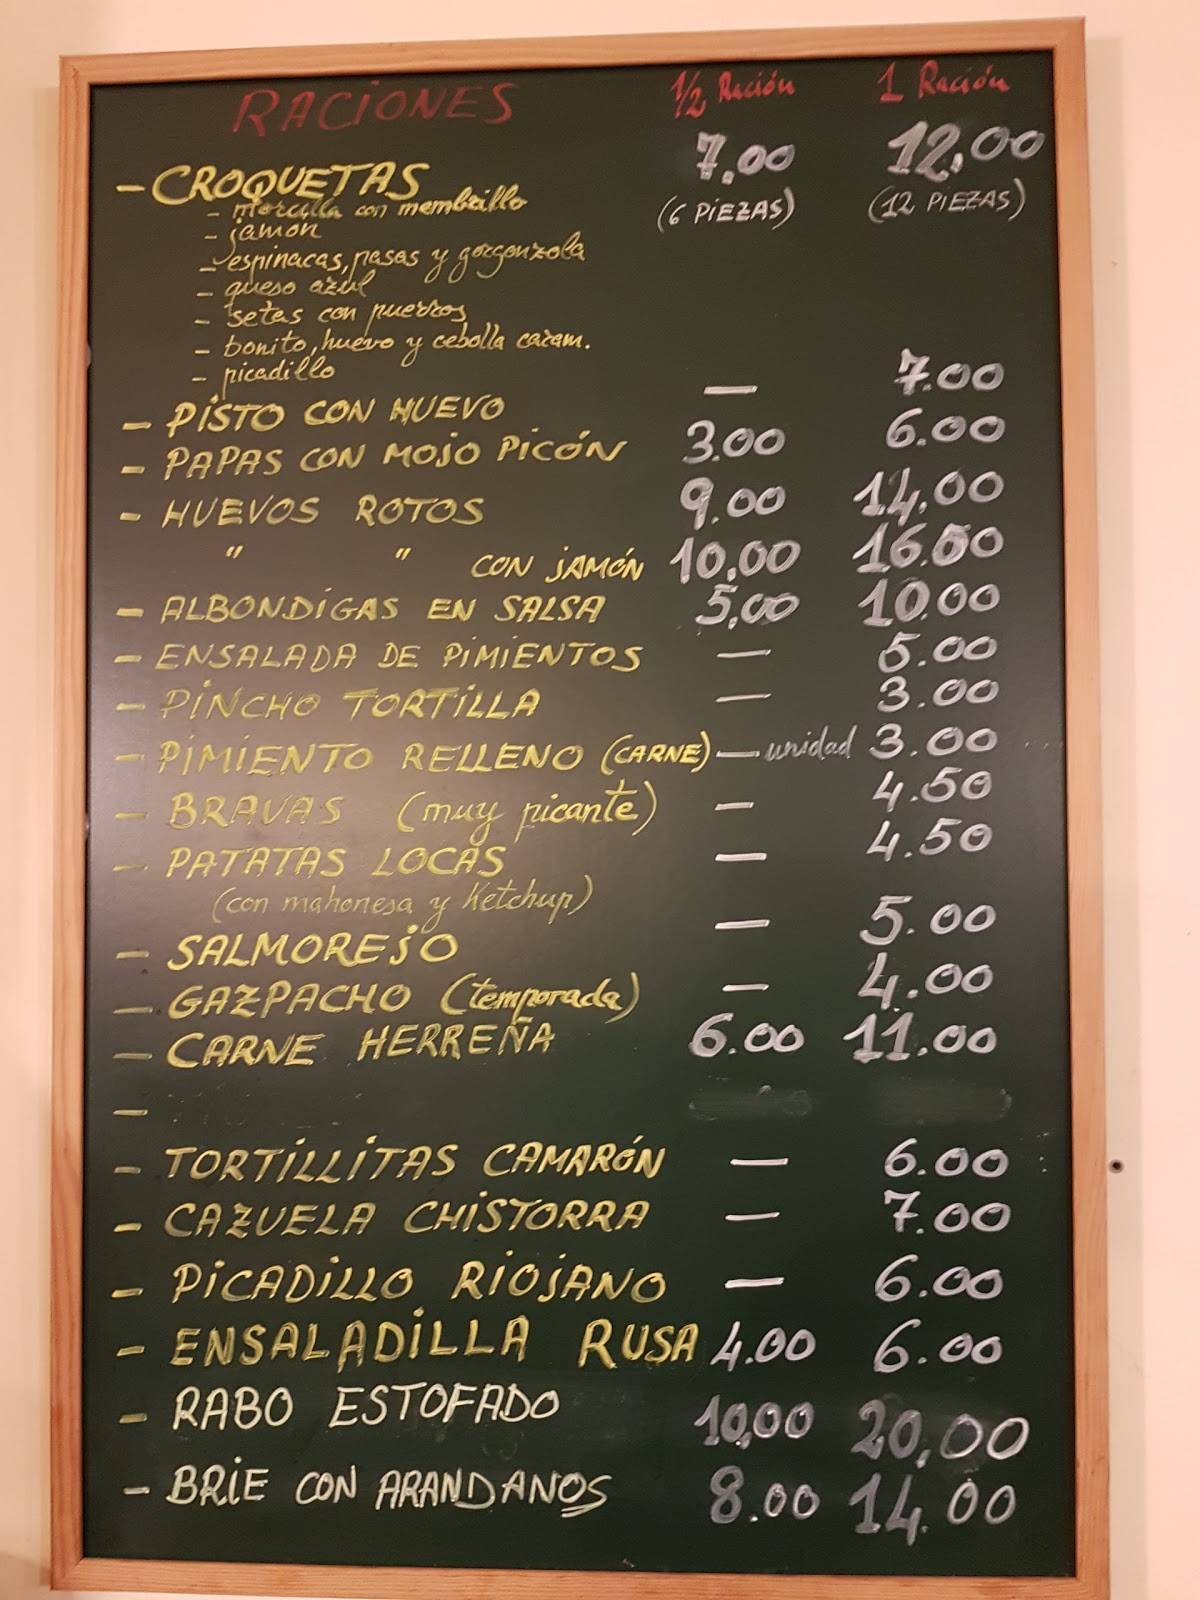 RACIONES 1/2 Ración 1 Ración
- CROQUETAS 7,00 12,00
(6 PIEZAS) (12 PIEZAS)
- morcilla con membrillo
- jamón
- espinacas, pasas y gorgonzola
- queso azul
- setas con puerros
- bonito, huevo y cebolla caram.
- picadillo
- PISTO CON HUEVO — 7.00
- PAPAS CON MOJO PICÓN 3.00 6.00
- HUEVOS ROTOS 9.00 14.00
" " CON JAMÓN 10,00 16.00
- ALBONDIGAS EN SALSA 5,00 10.00
- ENSALADA DE PIMIENTOS — 5.00
- PINCHO TORTILLA — 3.00
- PIMIENTO RELLENO (CARNE) — unidad 3.00
- BRAVAS (muy picante) — 4.50
- PATATAS LOCAS — 4.50
(con mahonesa y Ketchup)
- SALMOREJO — 5.00
- GAZPACHO (temporada) — 4.00
- CARNE HERREÑA 6.00 11.00
-
- TORTILLITAS CAMARÓN — 6.00
- CAZUELA CHISTORRA — 7.00
- PICADILLO RIOJANO — 6.00
- ENSALADILLA RUSA 4.00 6.00
- RABO ESTOFADO 10,00 20,00
- BRIE CON ARANDANOS 8.00 14.00